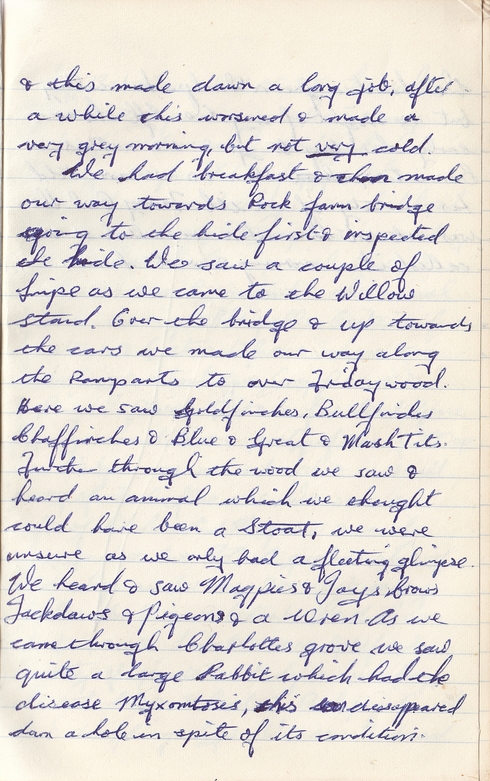 & this made dawn a long job, after
a while this worsened & made a
very grey morning, but not very cold.
We had breakfast & then made
our way towards Rock farm bridge
going to the hide first & inspected
the hide. We saw a couple of
Snipe as we came to the Willow
stand. Over the bridge & up towards
the cars we made our way along
the Ramparts to over Fridaywood.
Here we saw Goldfinches, Bullfinches
Chaffinches & Blue & Great & Marsh Tits.
Further through the wood we saw &
heard an animal which we thought
could have been a Stoat, we were
unsure as we only had a fleeting glimpse.
We heard & saw Magpies & Jays, Crows
Jackdaws & Pigeons & a Wren. As we
came through Charlottes grove we saw
quite a large Rabbit which had the
disease Myxomtosis, this disappeared
down a hole in spite of its condition.